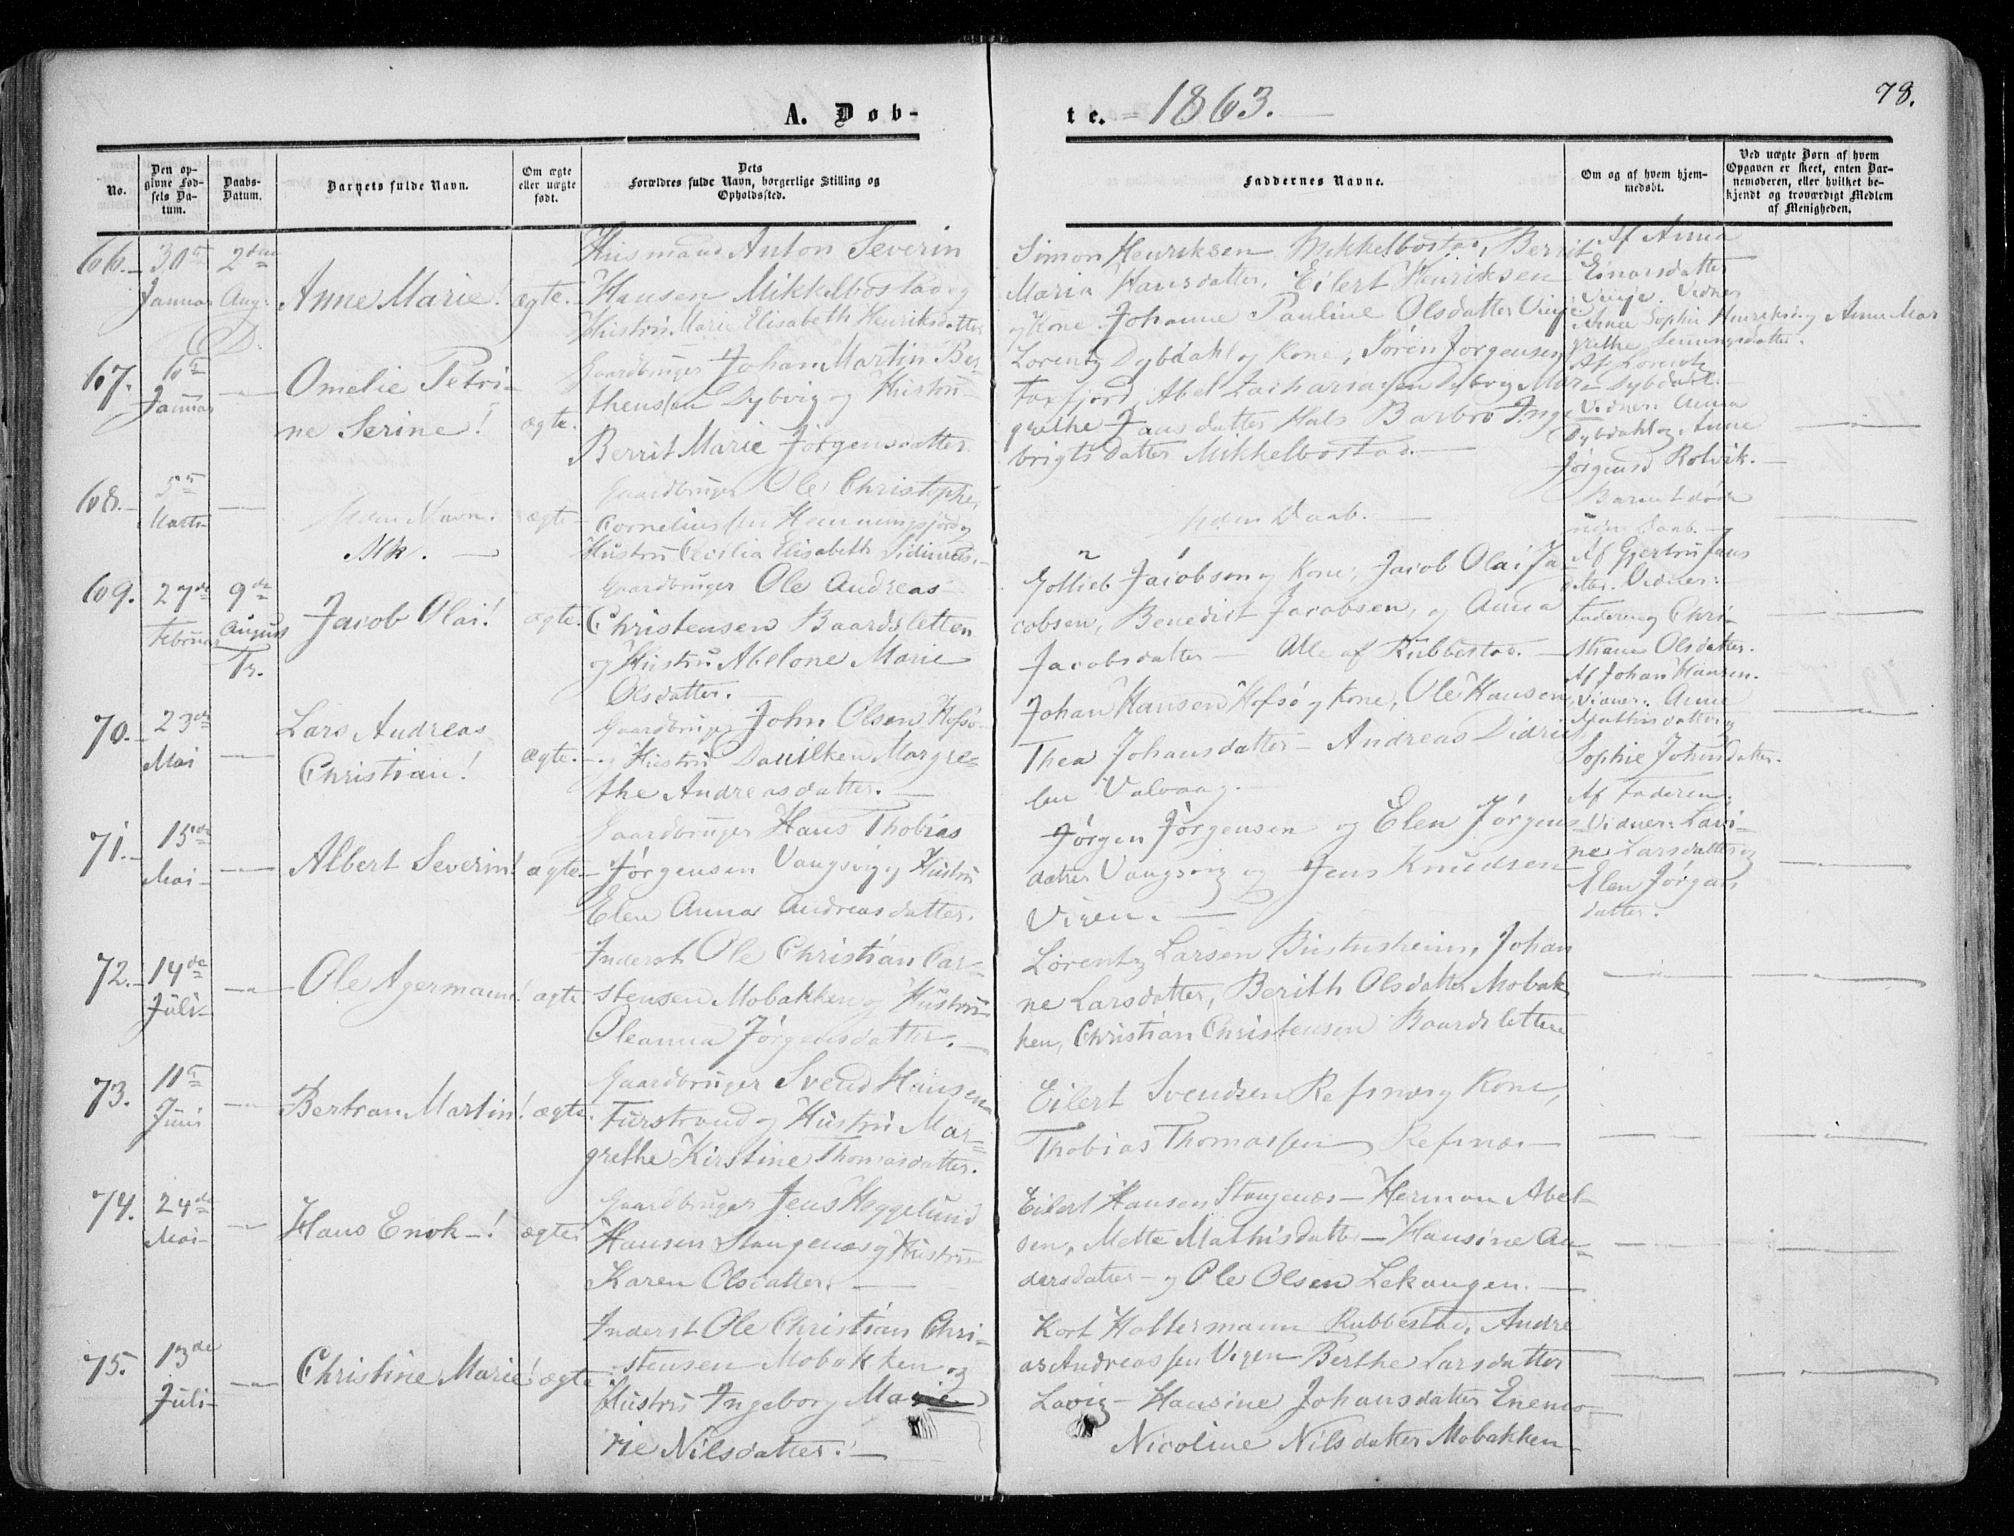 78.
A. Døb-
te. 1863.
No.
Den op-
givne Fød-
sels Da-
tum.
Daabs-
Datum.
Barnets fulde Navn.
Om ægte
eller uægte
født.
Dets
Forældres fulde Navn, borgerlige Stilling og
Opholdssted.
Faddernes Navne.
Om og af hvem hjem-
medøbt.
Ved uægte Børn af hvem
Opgaven er skeet, enten Bar-
nemoderen, eller hvilket be-
kjendt og troværdigt Medlem
af Menigheden.
66.
30te
Januar
2den
Aug.
Anne Marie!
ægte.
Husmand Anton Severin
Hansen Mikkelbostad og
Hustru Marie Elisabeth Henriksdatter
Simon Henriksen Mikkelbostad, Berrit
Maria Hansdatter, Eilert Henriksen
og Kone Johanne Pauline Olsdatter
Af Anna
Einarsdatter
Vidner
67.
Januar
Omelie Petri-
ne Serine!
ægte.
Gaardbruger Johan Martin Ber-
thenssen Dybvig og Hustru
Berrit Marie Jørgensdatter
Lorentz Dybdahl og Kone, Søren Jørgensen
Abel
grethe Jansdatter Hals Barbro Inge
brigtsdatter Mikkelbostad.
Af Lorentz
Dybdahl.
Vidner: Anna
Dybdahl og Anne
Jørgensd Rolvik.
68.
5te
Marts
Uden Navn.
Mk.
ægte
Gaardbruger Ole Christopher
Corneliussen
Hustru Elisabeth
Uden Daab.
Barnet døde
uden Daab.
69.
27de
Februar
9de
August
Tr.
Jacob Olai!
ægte.
Gaardbruger Ole Andreas
Christensen Baardsletten
og Hustru Abelone Marie
Olsdatter.
Gottlieb Jacobsen og Kone, Jacob Olai Ja-
cobsen, Benedict Jacobsen, og Anna
Jacobsdatter - Alle af Rubbestad.
Af Gjertru Jans
dtter. Vidner:
Faderen og Chri-
stiane Olsdatter.
70.
23de
Mai
Lars Andreas
Christian!
ægte.
Gaardbruger John Olsen Hofsø
og Hustru Danilken Margre-
the Andreasdatter.
Johan Hansen Hofsø og Kone, Ole Hansen,
Thea Johansdatter - Andreas Didrik
sen Valvaag.
Af Johan Hansen.
Vidner: Anne
Mathisdatter og
Sophie Johnsdatter.
71.
15de
Mai
Albert Severin!
ægte
Gaardbruger Hans Thobias
Jørgensen Vangsvig og Hustru
Elen Anna Andreasdatter.
Jørgen Jørgensen og Elen Jørgens
datter Vangsvig og Jens Knudsen
Vigen.
Af Faderen.
Vidner: Lavi-
ne Larsdatter og
Elen Jørgens
datter.
72.
14de
Juli
Ole Agermann!
ægte
Inderst Ole Christian Car-
stensen Mobakken og Hustru
Oleanna Jørgensdatter.
Lorentz Larsen Johan
ne Larsdatter, Berith Olsdatter Mobak
ken, Christian Christensen Baardsletten
73.
11te
Juni
Bertran Martin!
ægte.
Gaardbruger Svend Hansen
Furstrand og Hustru Mar-
grethe Kirstine Thomasdatter.
Eilert Svendsen Refsnæs og Kone,
Thobias Thomassen Refsnæs
74.
24de
Mai
Hans Enok!
ægte
Gaardbruger Jens Heggelund
Hansen Stangenæs og Hustru
Karen Olsdatter.
Eilert Hansen Stangenæs - Herman Abel-
sen, Mette Mathisdatter - Hansine An-
dersdatter - og Ole Olsen Lekangen.
75.
13de
Juli
Christine Marie!
ægte
Inderst Ole Christian Chri-
stensen Mobakken og
Hustru Ingeborg Ma
rie Nilsdatter.
Kort Holtermann Rubbestad, Andre
as Andreassen Vigen Berthe Larsdatter
Lavig - Hansine Johansdatter Enemo
Nicoline Nilsdatter Mobakken